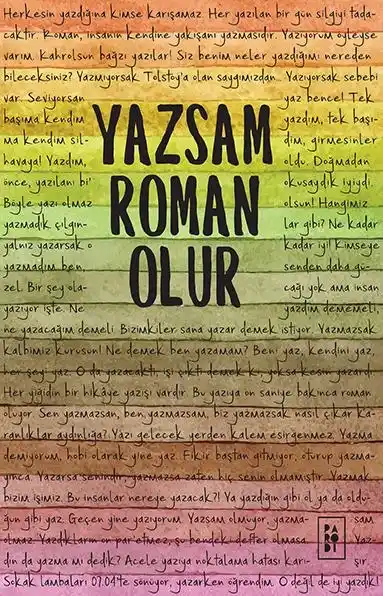 Herkesin yazdığına kimse karışamaz. Her yazılan bir gün silgiyi tada-
caktır. Roman, insanın kendine yakışanı yazmasıdır. Yazıyorum öyleyse
varım. Kahrolsun bağzı yazılar! Siz benim neler yazdığımı nereden
bileceksiniz? Yazmıyorsak Tolstoy'a olan saygımızdan. Yazıyorsak sebebi
var. Seviyorsan yaz bence! Tek
başıma kendim yazdım, tek başı-
ma kendim sil- dim, girmesinler
havaya! Yazdım, oldu. Doğmadan
önce, yazılanı bi' okusaydık iyiydi.
Böyle yazı olmaz olsun! Hangimiz
yazmadık çılgın- lar gibi? Ne kadar
yalnız yazarsak o kadar iyi! Kimseye
yazmadım ben, senden daha gü-
zel. Bir şey ola- cağı yok ama insan
yazıyor işte. Ne yazdım dememeli,
YAZSAM
ROMAN
OLUR
ne yazacağım demeli. Bizimkiler sana yazar demek istiyor. Yazmazsak
kalbimiz kurusun! Ne demek ben yazamam? Beni yaz, kendini yaz,
her şey yaz. O da yazacaktı, işi çıktı demek ki, yoksa kesin yazardı.
Her yiğidin bir hikâye yazışı vardır. Bu yazıya on saniye bakınca roman
oluyor. Sen yazmazsan, ben yazmazsam, biz yazmazsak nasıl çıkar ka-
ranlıklar aydınlığa? Yazı gelecek yerden kalem esirgenmez. Yazma
demiyorum, hobi olarak yine yaz. Fikir baştan gitmiyor, oturup yazma-
yınca. Yazarsa senindir, yazmazsa zaten hiç senin olmamıştır. Yazmak
bizim işimiz. Bu insanlar nereye yazacak?! Ya yazdığın gibi ol ya da oldu-
ğun gibi yaz. Geçen yine yazıyorum. Yazsam olmuyor, yazma- sam
olmaz. Yazdıkların on par'etmez, şu bendeki defter olmasa. Yaz-
dın da yazma mı dedik? Acele yazıya noktalama hatası karı- şır.
Sokak lambaları 07.04'te sönüyor, yazarken öğrendim. O değil de iyi yazdık!
PA
RO
Dİ